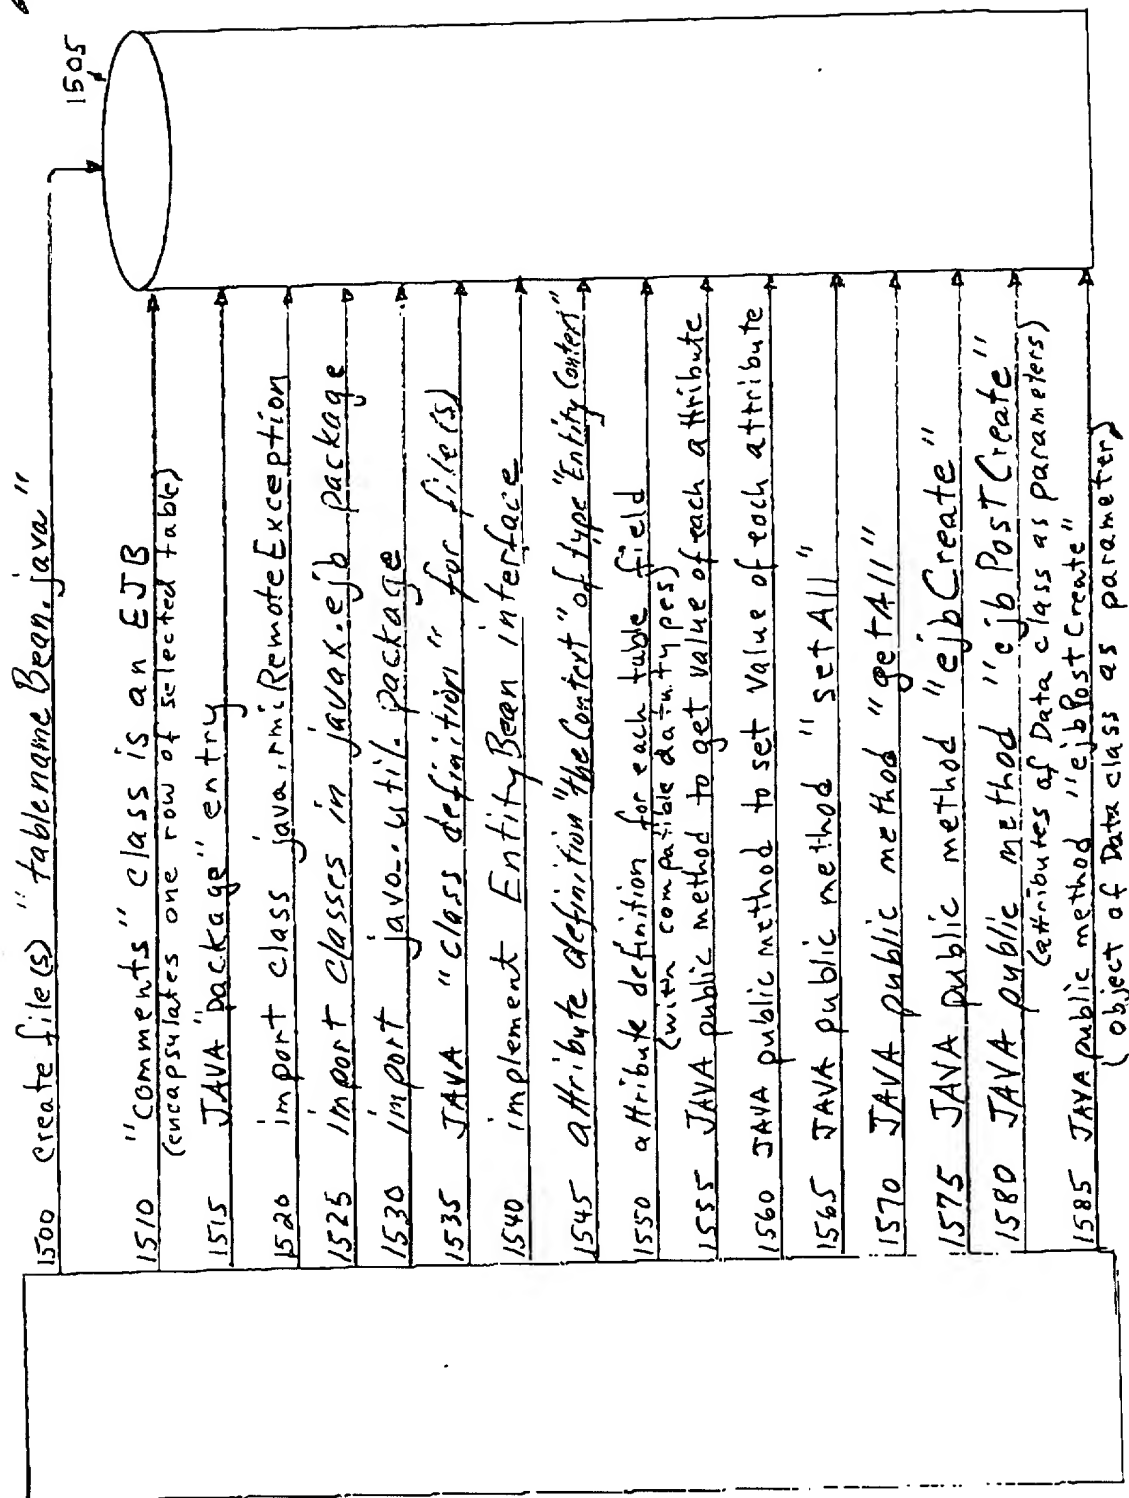 1505
1500 create file(s) "tablename Bean.java"
1510 "comments" class is an EJB
(encapsulates one row of selected table)
1515 JAVA "package" entry
1520 import class java.rmi RemoteException
1525 import classes in javax.ejb package
1530 import java.util. package
1535 JAVA "class definition" for file(s)
1540 implement EntityBean interface
1545 attribute definition "the Context" of type "Entity Context"
1550 attribute definition for each table field
(with compatible data types)
1555 JAVA public method to get value of each attribute
1560 JAVA public method to set value of each attribute
1565 JAVA public method "setAll"
1570 JAVA public method "getAll"
1575 JAVA public method "ejbCreate"
1580 JAVA public method "ejbPostCreate"
(attributes of Data class as parameters)
1585 JAVA public method "ejbPostCreate"
(object of Data class as parameter)